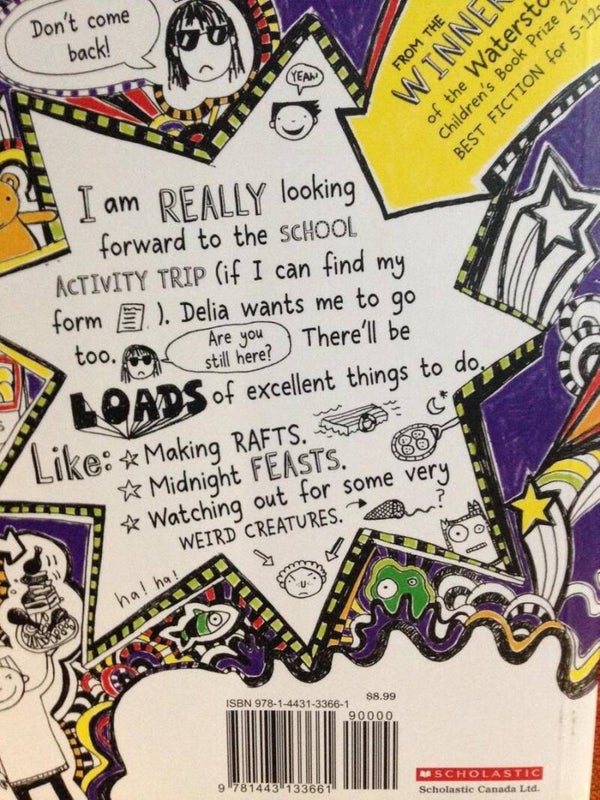 Don't come
back!
FROM THE
WINNER
of the Watersto
Children's Book Prize 20
BEST FICTION for 5-12
YEAH
I am REALLY looking
forward to the SCHOOL
ACTIVITY TRIP (if I can find my
form ). Delia wants me to go
too. Are you still here? There'll be
LOADS of excellent things to do.
Like: ☆ Making RAFTS.
☆ Midnight FEASTS.
☆ Watching out for some very
WEIRD CREATURES. ?
ha! ha!
ISBN 978-1-4431-3366-1 $8.99
90000
9 781443 133661
SCHOLASTIC
Scholastic Canada Ltd.